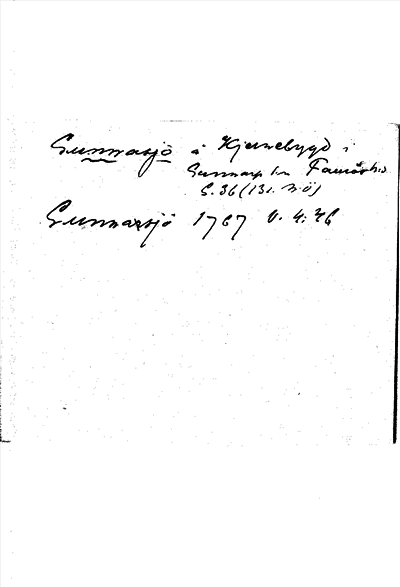 Gunnasjö å Kjernebygd i
Gunnarp sn Faurås hd
S. 36 (131. N Ö)
Gunnarsjö 1767 V. 4:46